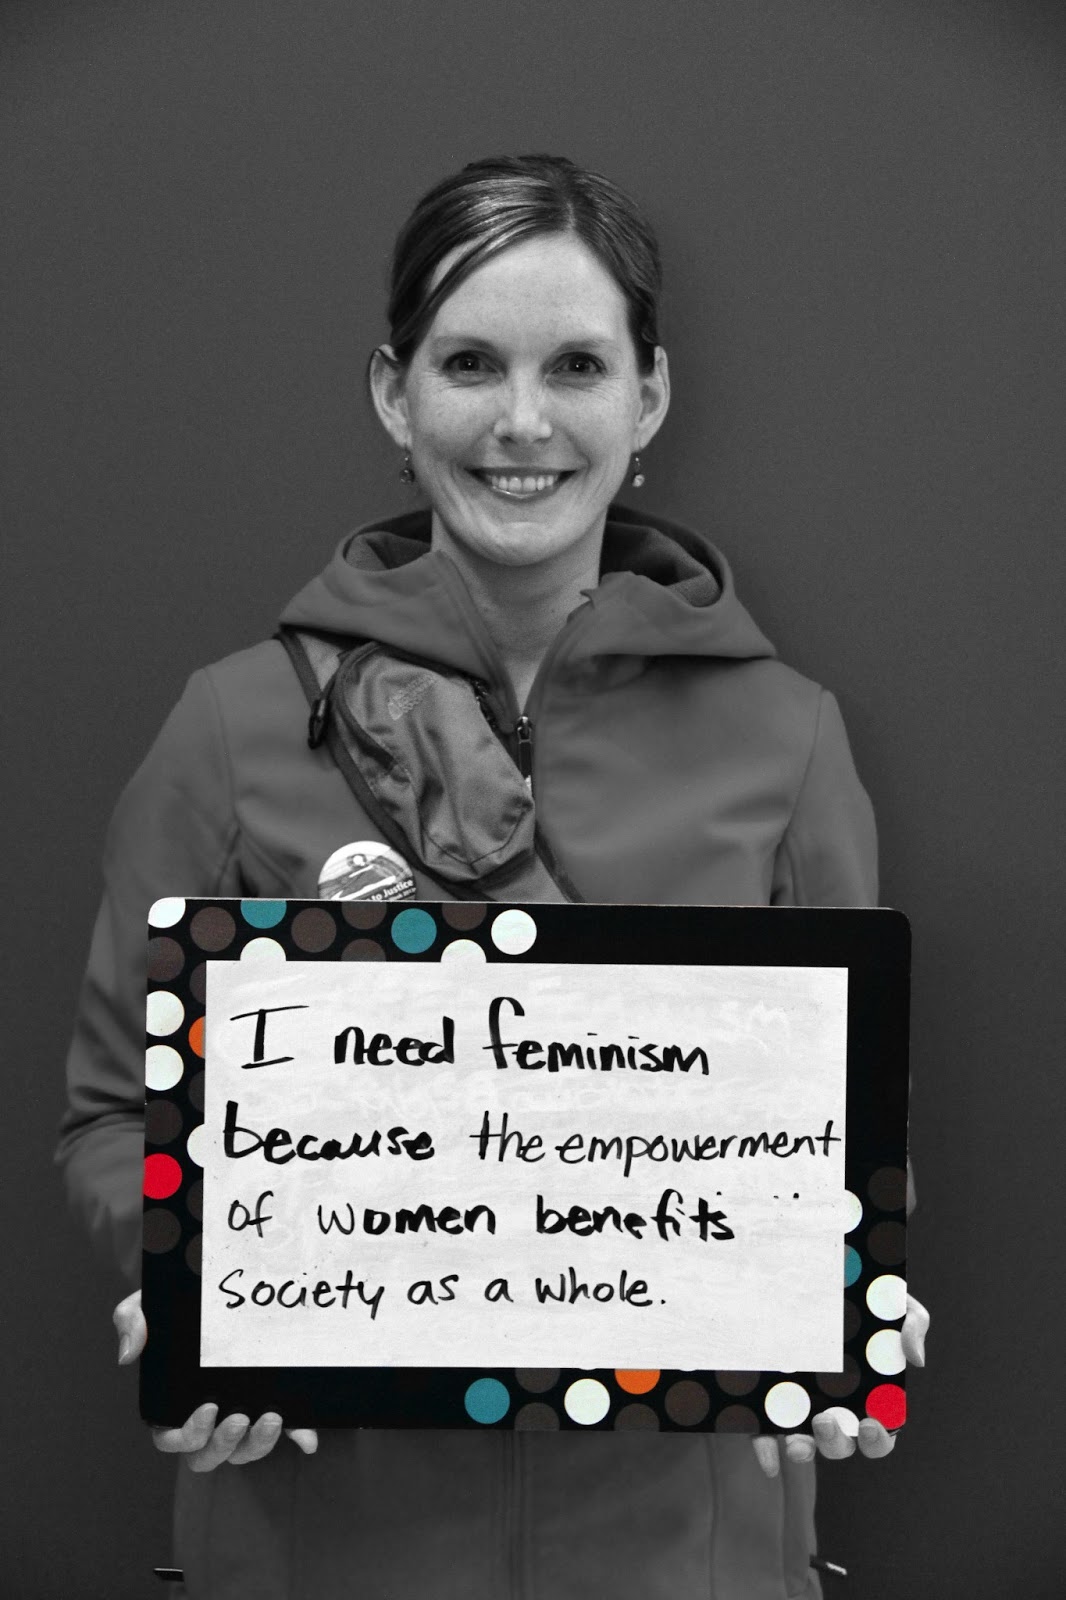 to Justice
I need feminism
because the empowerment
of women benefits
Society as a whole.